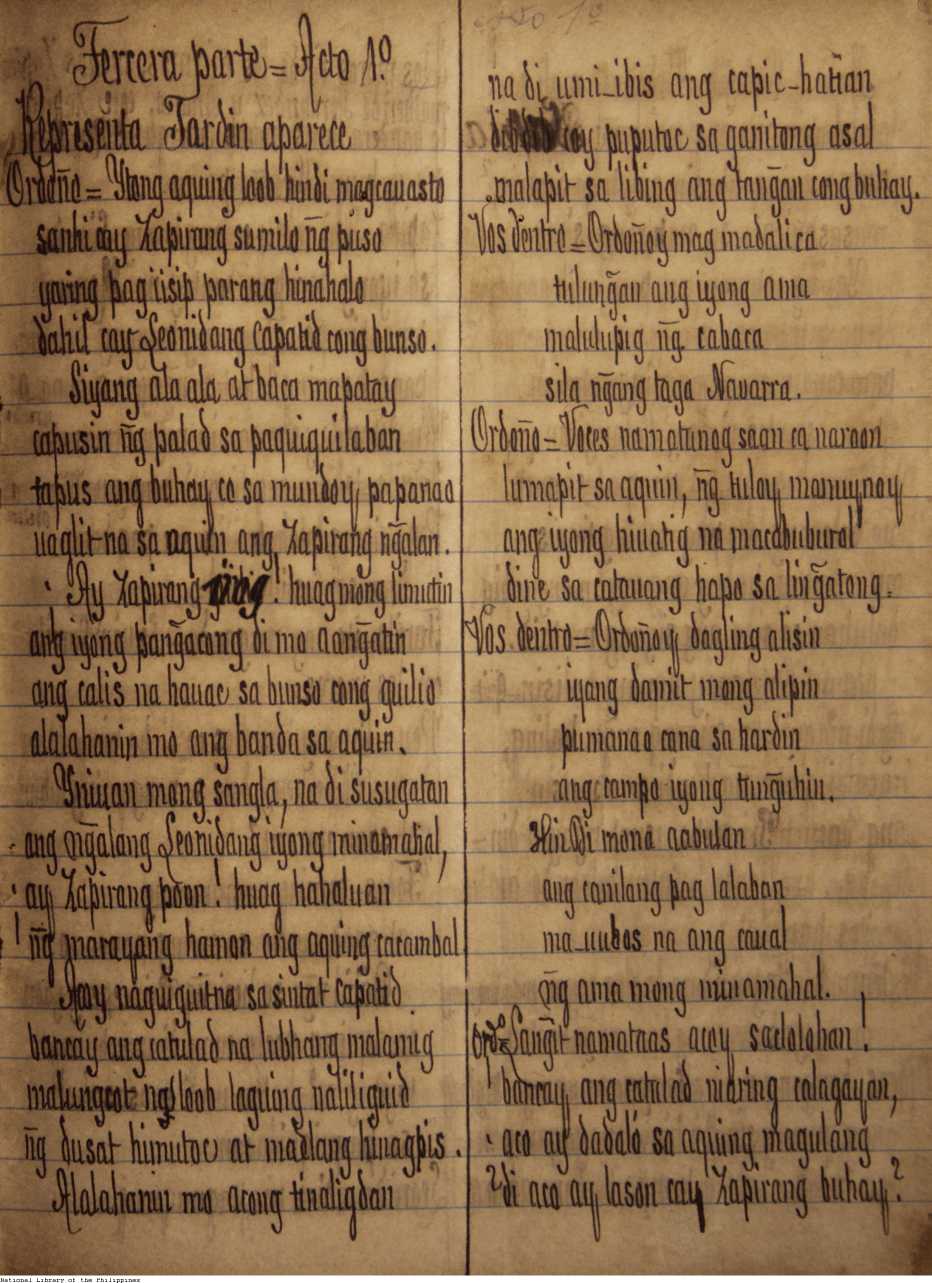 Tercera parte = Acto 1º
Representa Jardin aparece
Ordoño = Ytong aquing loob hindi magcauasto
sanhi cay Zapirang sumilo ng̃ puso
yaring pag iisip parang hinahalo
dahil cay Leonidang capatid cong bunso.
Siyang ala ala at baca mapatay
capusin ng̃ palad sa paquiquilaban
tapus ang buhay co sa mundoy papanao
uaglit na sa aquin ang Zapirang ng̃alan.
Ay Zapirang! huag mong limutin
ang iyong pang̃acong di mo aang̃atin
ang calis na hauac sa bunso cong guilio
alalahanin mo ang banda sa aquin.
Yniuan mong sangla, na di susugatan
ang ng̃alang Leonidang iyong minamahal,
ay Zapirang poon! huag hahaluan
ng̃ marayang hamon ang aquing cacambal
Acoy naguiguitna sa sintat capatid
bancay ang catulad na lubhang malamig
malungcot ng loob laguing naliliguid
ng̃ dusat himutoc at madlang hinagpis.
Alalahanin mo acong tinaligdan
na di umi-ibis ang capic-hatian
coy puputoc sa ganitong asal
malapit sa libing ang tang̃an cong buhay.
Vos dentro = Ordoñoy mag madali ca
tulung̃an ang iyong ama
malulupig ng̃ cabaca
sila ng̃ang taga Navarra.
Ordoño = Voces namatunog saan ca naroon
lumapit sa aquin, ng̃ tuloy manuynoy
ang iyong hiuatig na macabubural
dine sa catauang hapo sa ling̃atong.
Vos dentro = Ordoñoy dagling alisin
iyang damit mong alipin
pumanao cana sa hardin
ang campo iyong tung̃uhin.
Hindi mona aabutan
ang canilang pag lalaban
ma-uubos na ang caual
ng̃ ama mong minamahal.
Ordº Lang̃it namataas acoy saclolohan!
bancay ang catulad niaring calagayan,
aco ay dadalo sa aquing magulang
?di aco ay lason cay Zapirang buhay?
National Library of the Philippines